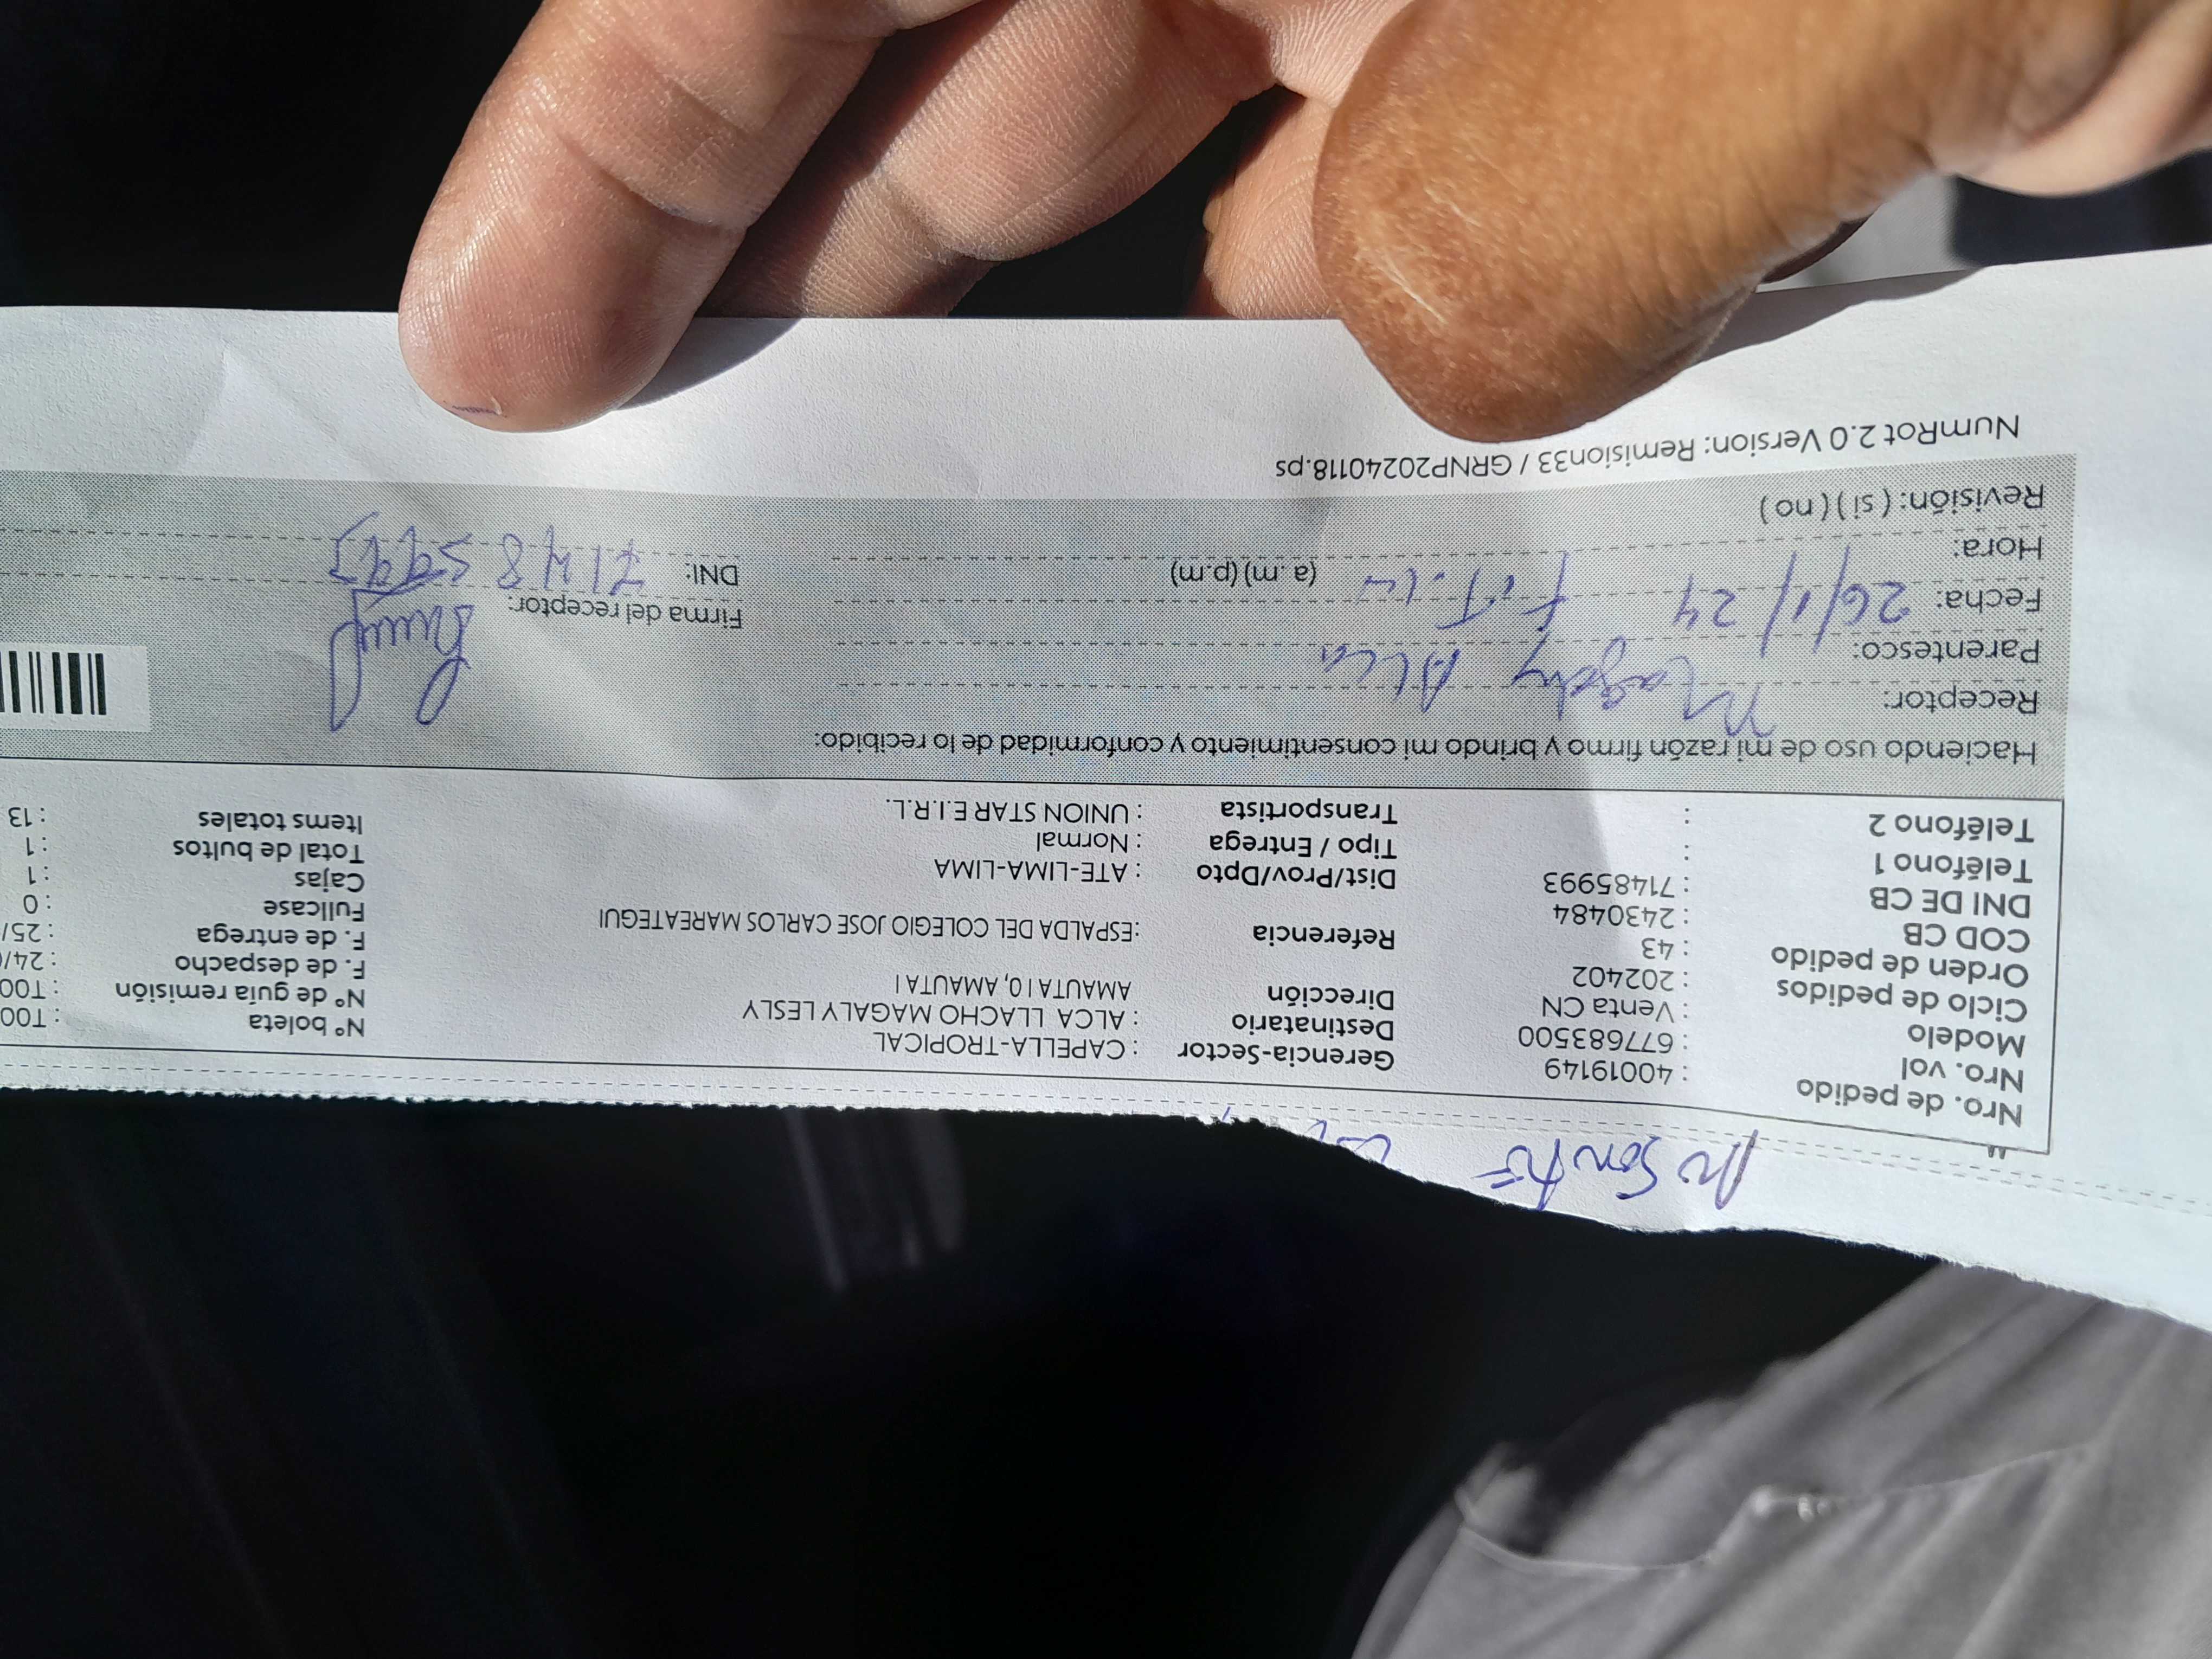 Nro. de pedido : 40019149
Nro. vol : 677683500
Modelo : Venta CN
Ciclo de pedidos : 202402
Orden de pedido : 43
COD CB : 2430484
DNI DE CB : 71485993
Teléfono 1 :
Teléfono 2 :
Gerencia-Sector : CAPELLA-TROPICAL
Destinatario : ALCA LLACHO MAGALY LESLY
Dirección AMAUTA I 0, AMAUTA I
Referencia :ESPALDA DEL COLEGIO JOSE CARLOS MAREATEGUI
Dist/Prov/Dpto : ATE-LIMA-LIMA
Tipo / Entrega : Normal
Transportista : UNION STAR E.I.R.L.
Nº boleta : T00
Nº de guía remisión : T00
F. de despacho : 24/
F. de entrega : 25/
Fullcase : 0
Cajas : 1
Total de bultos : 1
Items totales : 13
Haciendo uso de mi razón firmo y brindo mi consentimiento y conformidad de lo recibido:
Receptor: Magaly Alca
Parentesco:
Fecha: 26/1/24
Hora: (a .m) (p.m)
Revisión: ( si ) ( no )
Firma del receptor:
DNI: 71485993
NumRot 2.0 Version: Remision33 / GRNP20240118.ps